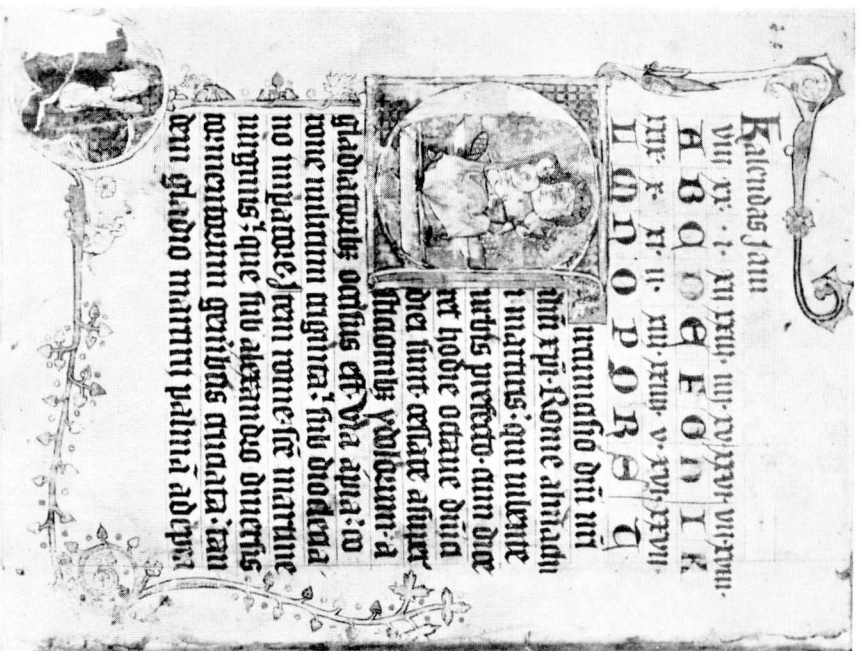 Kalendas Janu
viii xx · i · xii xxiii · iiii · xv xxvi · vii · xviii ·
A B C D E F G H I K
xxix · x · xi · ii · xiii · xxiiii · v · xvi · xxvii ·
L M N O P Q R S T
Circumcisio dñi nri
ihu xpi. Rome almachii
martiris: qui iubente
urbis prefecto. cum dice
ret hodie octaue dñici
diei sunt. cessate a super
sticionibꝫ ydolorum. a
gladiatoribꝫ occisus est. Via apia: co
rone militum triginta: sub dioclecia
no imperatore. Item rome. sce martine
uirginis: que sub alexandro diuersis
tormentorum generibus cruciata: tan
dem gladio martirii palmā adepta